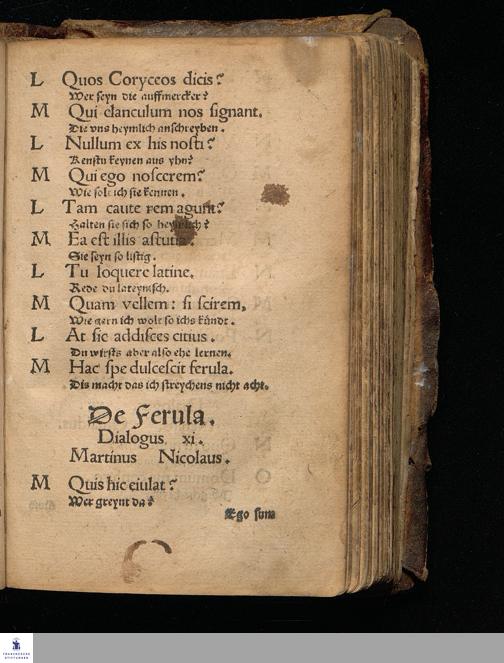 L Quos Coryceos dicis?
Wer seyn die auffmercker?
M Qui clanculum nos signant.
Die vns heymlich anschreyben.
L Nullum ex his nosti?
Kenstu keynen aus yhn?
M Qui ego noscerem?
Wie solt ich sie kennen.
L Tam caute rem agunt?
Halten sie sich so heymlich?
M Ea est illis astutia.
Sie seyn so listig.
L Tu loquere latine.
Rede du lateynisch.
M Quam vellem: si scirem,
Wie gern ich wolt so ichs kündt.
L At sic addisces citius.
Du wirsts aber also ehe lernen.
M Hac spe dulcescit ferula.
Dis macht das ich streychens nicht acht.
De Ferula.
Dialogus xi.
Martinus Nicolaus.
M Quis hic eiulat?
Wer greynt da?
Ego sum